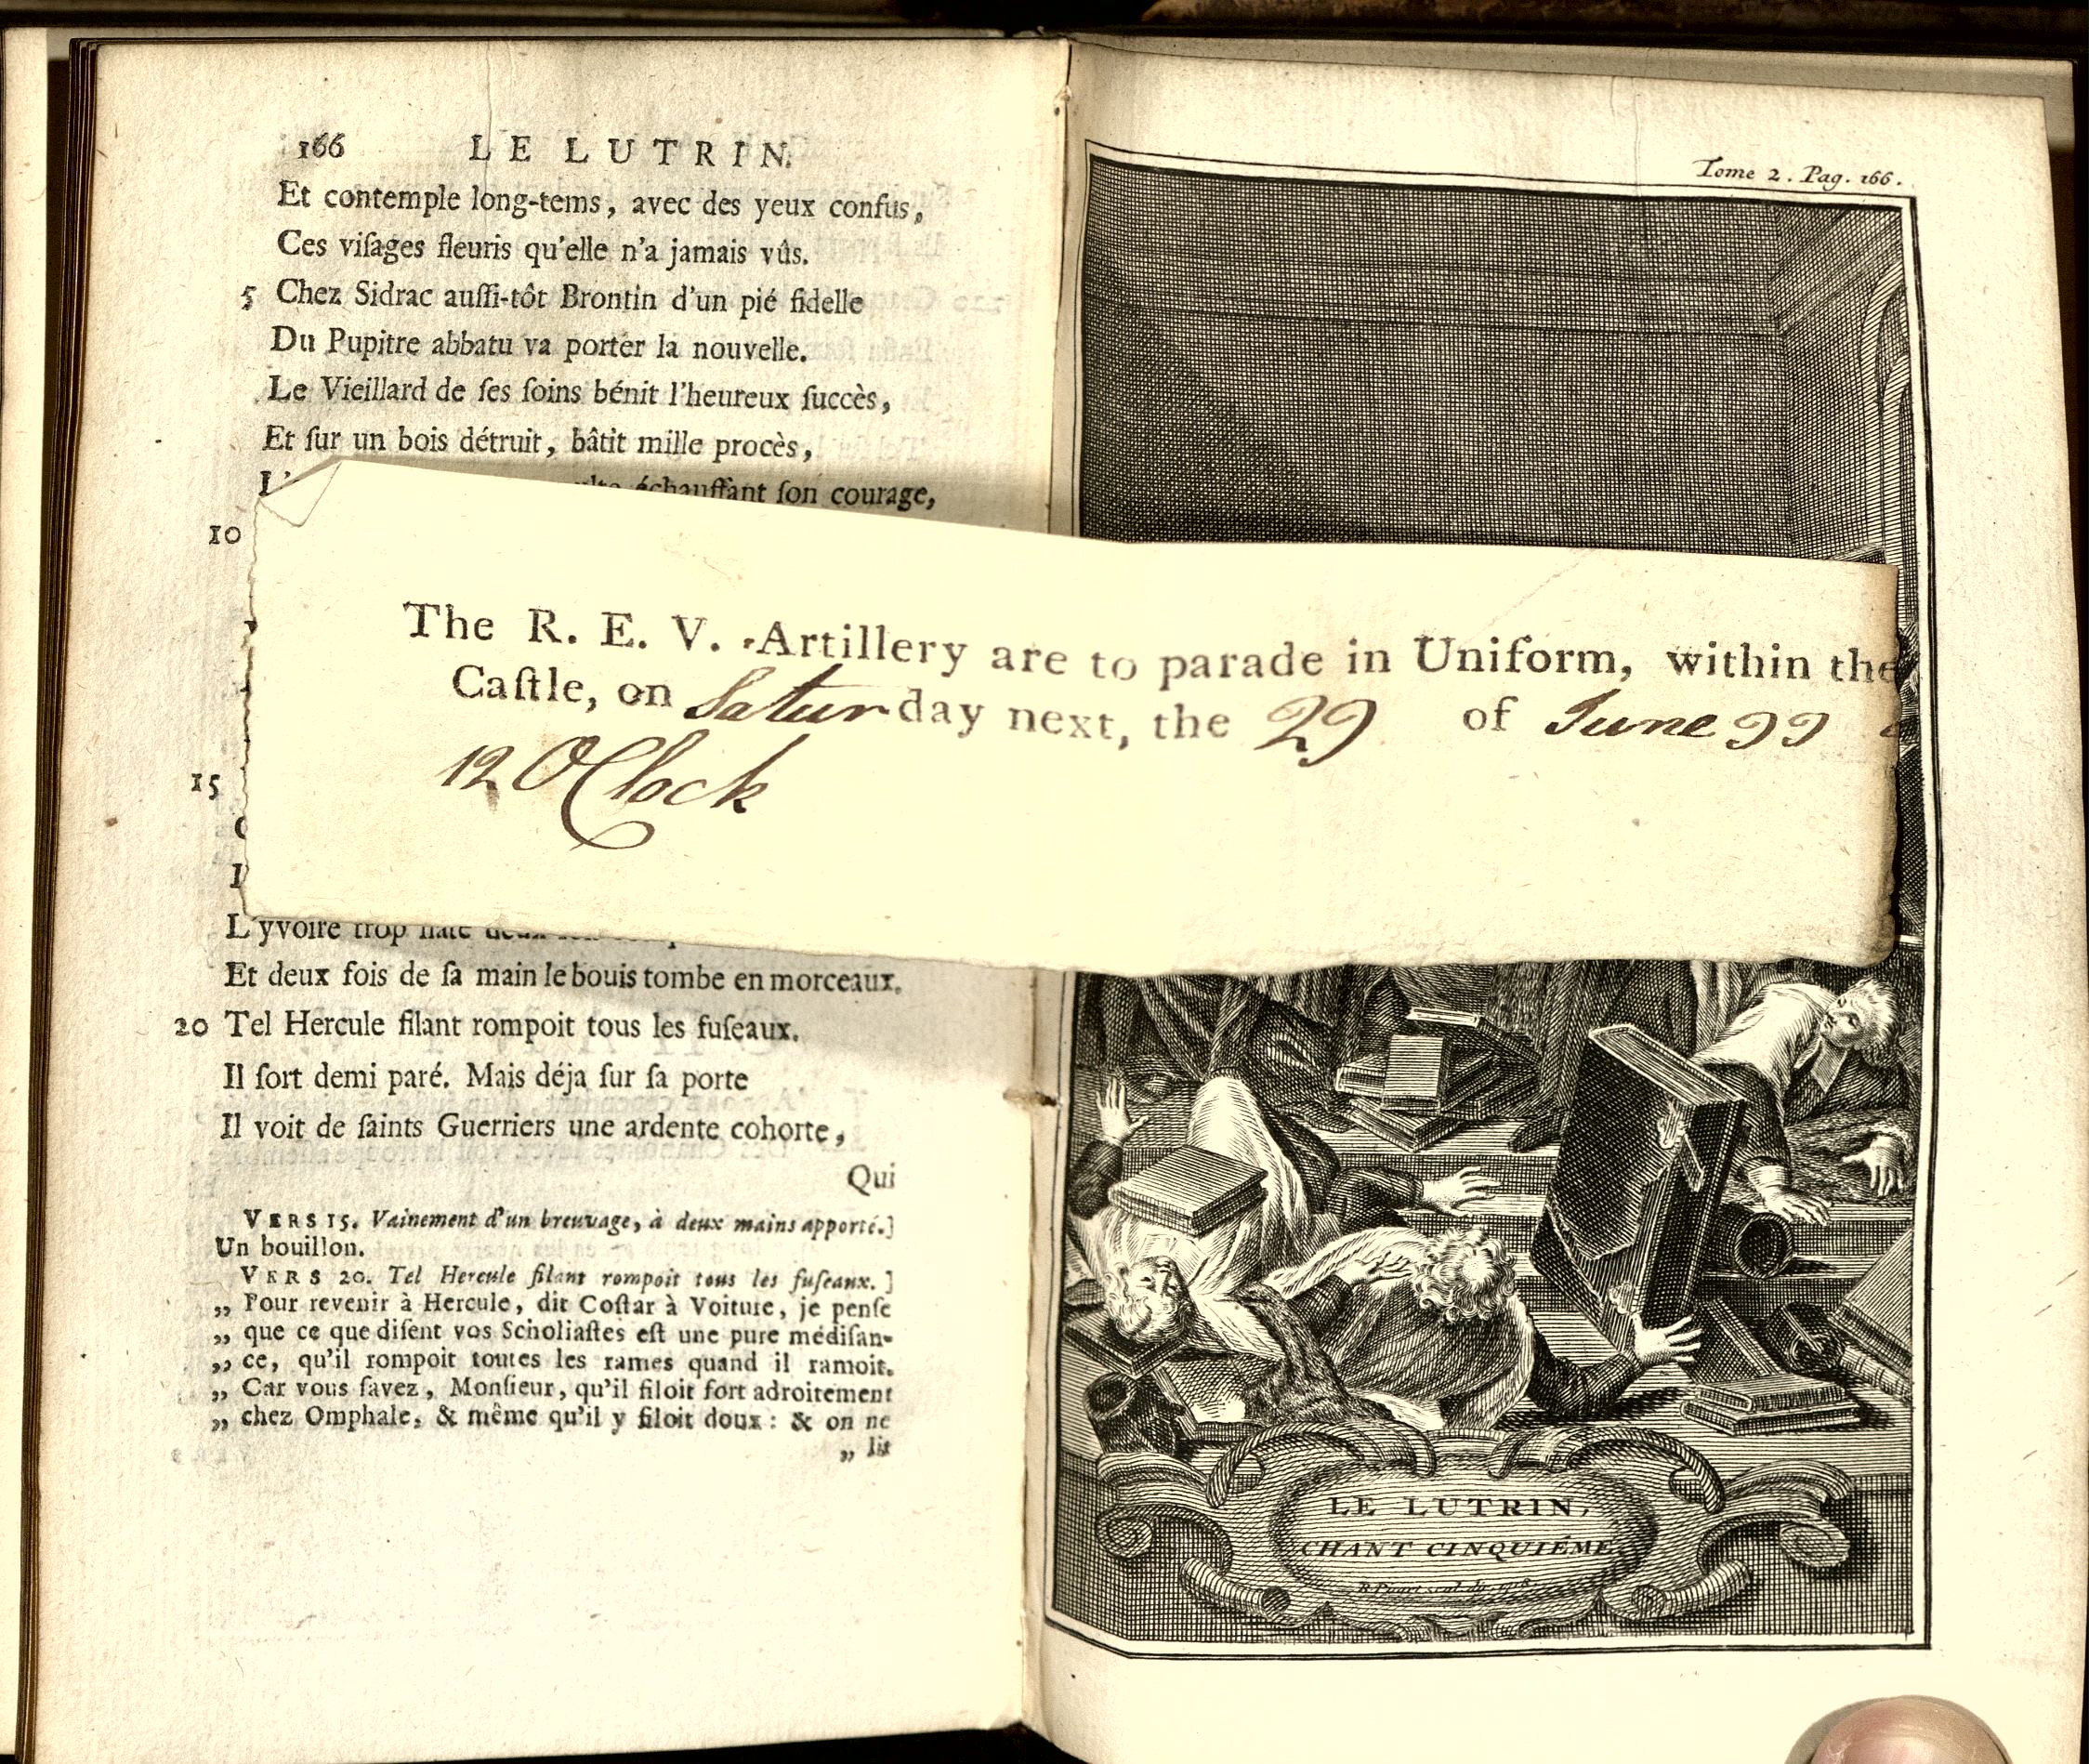 166 LE LUTRIN.
Et contemple long-tems, avec des yeux confus,
Ces viſages fleuris qu'elle n'a jamais vûs.
5 Chez Sidrac auſſi-tôt Brontin d'un pié fidelle
Du Pupitre abbatu va porter la nouvelle.
Le Vieillard de ſes ſoins bénit l'heureux ſuccès,
Et ſur un bois détruit, bâtit mille procès,
échauffant ſon courage,
10
The R. E. V. Artillery are to parade in Uniform, within the
Caſtle, on Saturday next, the 29 of June 99
12 OClock
15
L'yvoire trop
Et deux fois de ſa main le bouis tombe en morceaux.
20 Tel Hercule filant rompoit tous les fuſeaux.
Il ſort demi paré. Mais déja ſur ſa porte
Il voit de ſaints Guerriers une ardente cohorte,
Qui
VERS 15. Vainement d'un breuvage, à deux mains apporté.]
Un bouillon.
VERS 20. Tel Hercule filant rompoit tous les fuſeaux. ]
„ Pour revenir à Hercule, dit Coſtar à Voiture, je penſe
„ que ce que diſent vos Scholiaſtes eſt une pure médiſan-
„ ce, qu'il rompoit toutes les rames quand il ramoit.
„ Car vous ſavez, Monſieur, qu'il filoit fort adroitement
„ chez Omphale, & même qu'il y filoit doux : & on ne
„ lit
Tome 2. Pag. 166.
LE LUTRIN,
CHANT CINQUIÉME.